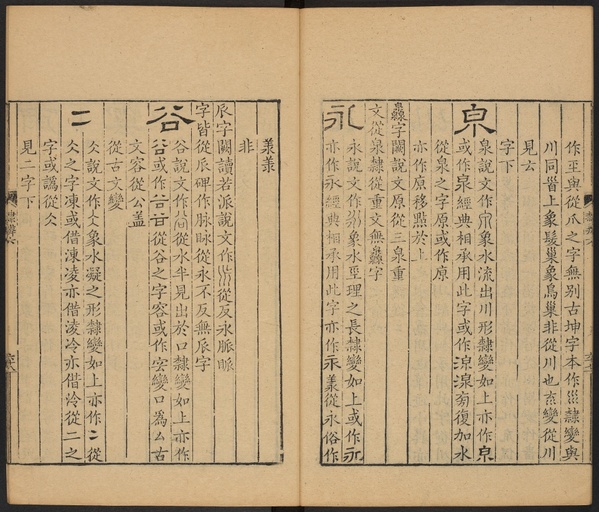 作坙與從爪之字無别古坤字本作巛隸變與
川同𡿺上象髮巢象鳥巢非從川也㐬變從川
見𠫓
字下
泉
泉說文作 象水流出川形隸變如上亦作
或作 經典相承用此字或作 湶旁復加水
從泉之字原或作原
亦作原移㸃於上
灥字闕說文原從三泉重
文從泉隸從重文無灥字
永
永說文作 象水坙理之長隸變如上或作
亦作永經典相承用此字亦作永羕從永俗作
羕羕
非
𠂢字闕讀若派說文作 從反永脈䘑
字皆從𠂢碑作脉眿從永不反無𠂢字
谷
谷說文作 從水半見出於口隸變如上亦作
或作 從谷之字容或作 變口爲厶古
文容從公盖
從古文變
二
仌說文作仌象水凝之形隸變如上亦作冫從
仌之字凍或借涷凌亦借淩冷亦借泠從二之
字或譌從仌
見二字下
隸辨六